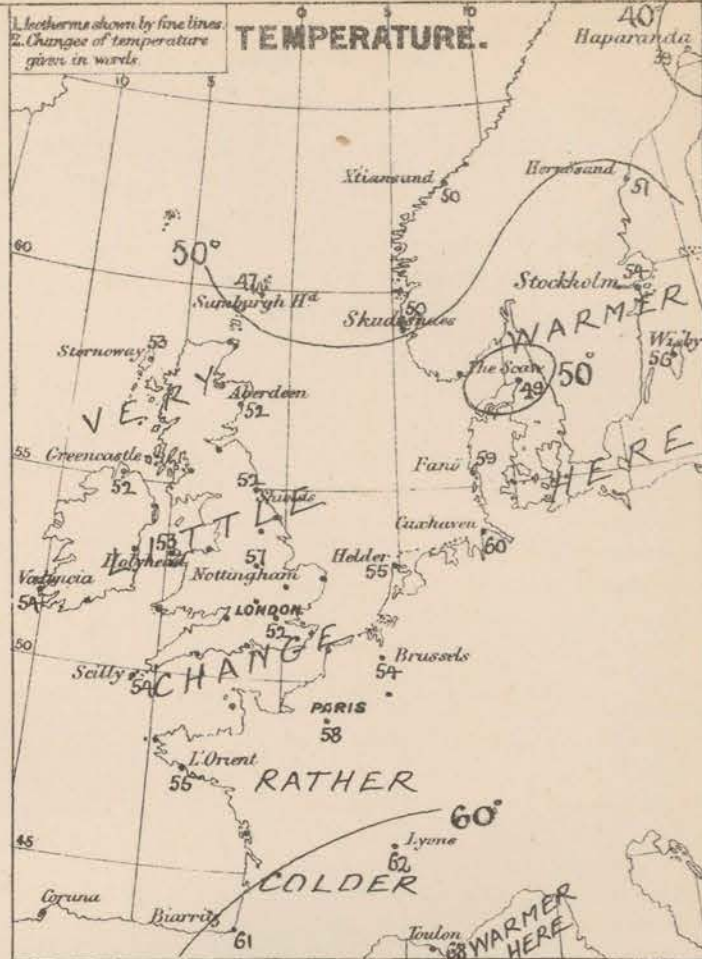 1. Isotherms shown by fine lines.
2. Changes of temperature
given in words.
TEMPERATURE.
0 5 10
10 5
40°
Haparanda
39
Xtiansand
50
Hernösand
51
60
50°
47
Sumburgh Hd
50
Skudesnaes
54
Stockholm
WARMER
Wisby
56
Stornoway
53
The Scaw
49
50°
VERY
Aberdeen
52
55
Greencastle
52
52
Shields
Fanö
59
HERE
LITTLE
53
Holyhead
57
Nottingham
Cuxhaven
60
Helder
55
Valencia
54
LONDON
52
50
Scilly
54
CHANGE
Brussels
54
PARIS
58
L'Orient
55
RATHER
60°
45
Lyons
62
COLDER
Coruna
Biarritz
61
Toulon
68
WARMER
HERE